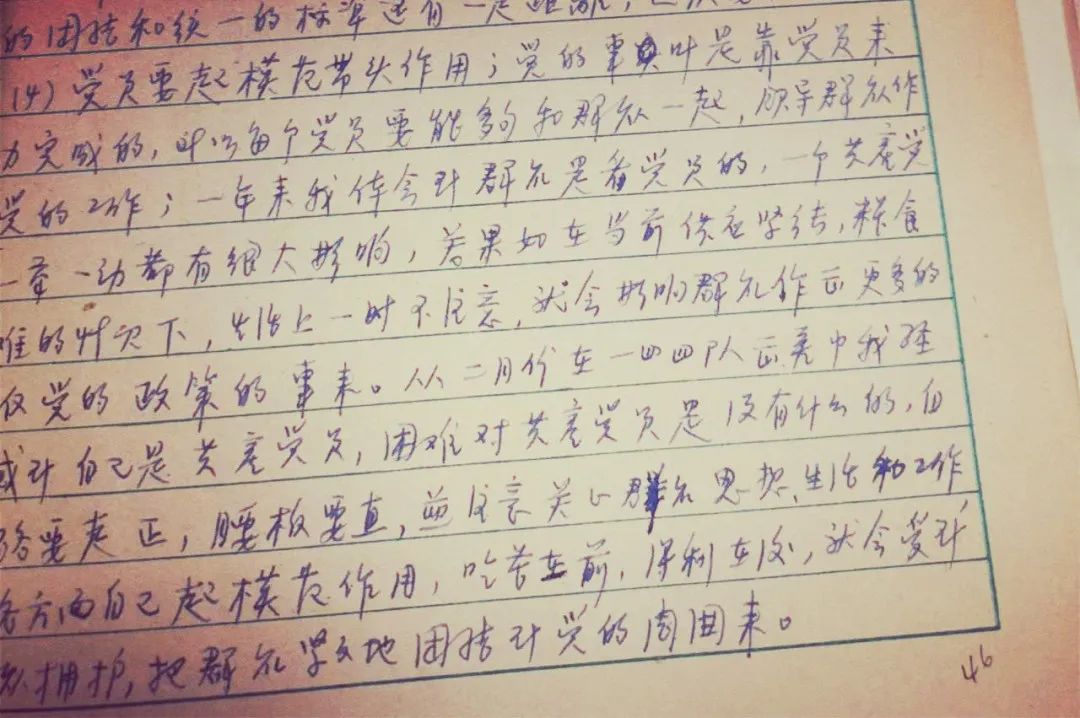 的团结和统一的标准还有一定距离，
(4) 党员要起模范带头作用；党的事业是靠党员来
力完成的，所以每个党员要能够和群众一起，领导群众作
党的工作；一年来我体会到群众是看党员的，一个共产党
一举一动都有很大影响，若果如在当前供应紧张，粮食
难的情况下，生活上一时不注意，就会影响群众作出更多的
反党的政策的事来。从二月份在一四四队工亮中我经
或到自己是共产党员，困难对共产党员是没有什么的，但
路要走正，腰板要直，并注意关心群众思想、生活和工作
各方面自己起模范作用，吃苦在前，得利在后，就会受到
众拥护，把群众紧紧地团结到党的周围来。
46